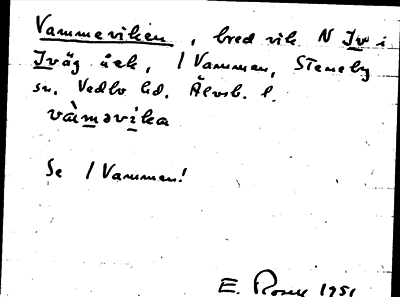 Vammeviken, bred vik N Iv i
Iväg åek, / Vammen, Steneby
sn. Vedbo hd. Älvsb. l.
vàməvika
Se / Vammen!
E. 1951